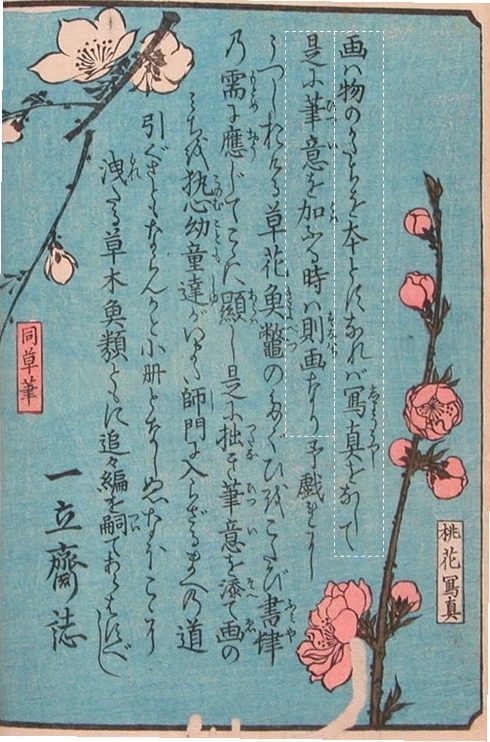 画ハ物のかたちを本とすなれバ冩真をなして
是に筆意を加ふる時ハ則画なり予戯
うつしおける草花魚鼈のたぐひをこたび書肆
乃需に應じてこゝに顯し是に拙き筆意を添て画の
執心幼童達がいまだ師門に入らざるまへの道
引ぐさともならんかと小册となしぬなほこゝに
洩たる草木魚類ともに追々編を嗣てあらはすべし
一立齋誌
桃花冩真
同草筆